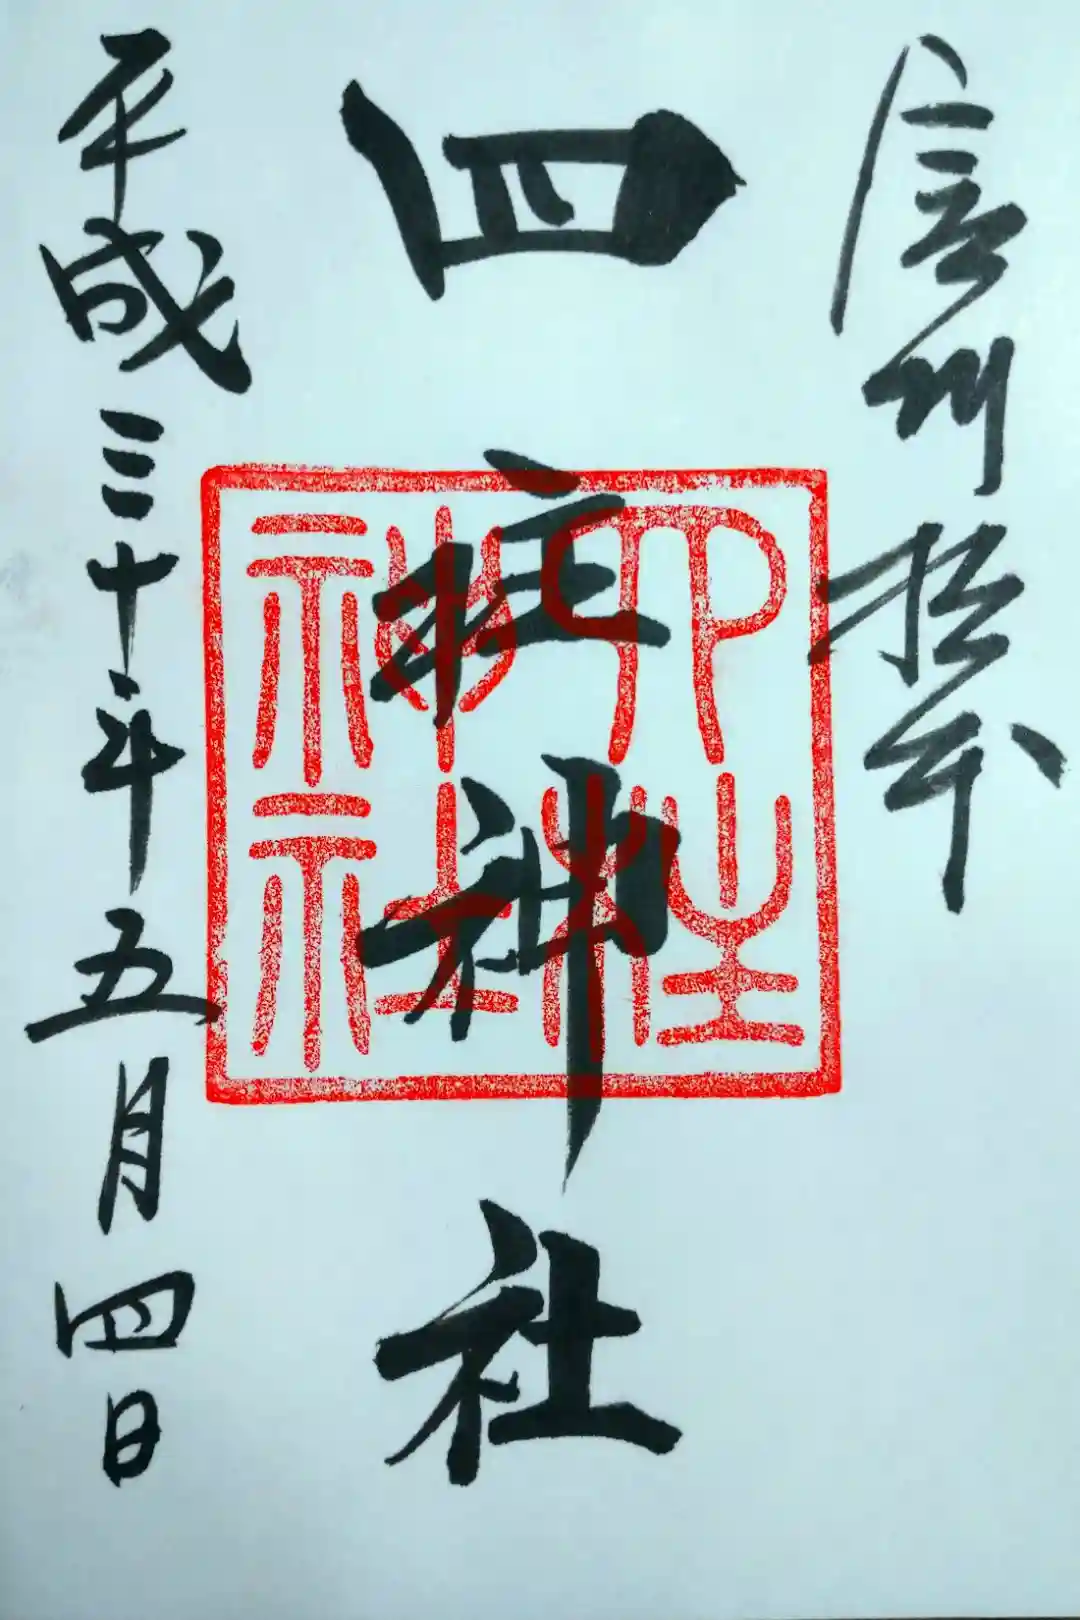 信州松本
四柱神社
四柱神社
平成三十年五月四日